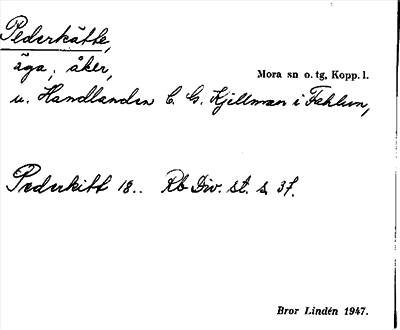 Pederkätte,
äga, åker, Mora sn o. tg, Kopp. l.
u. Handlanden C. G. Kjellman i Fahlun,
Pederkitt 18.. Rb Div. st. s 37.
Bror Lindén 1947.